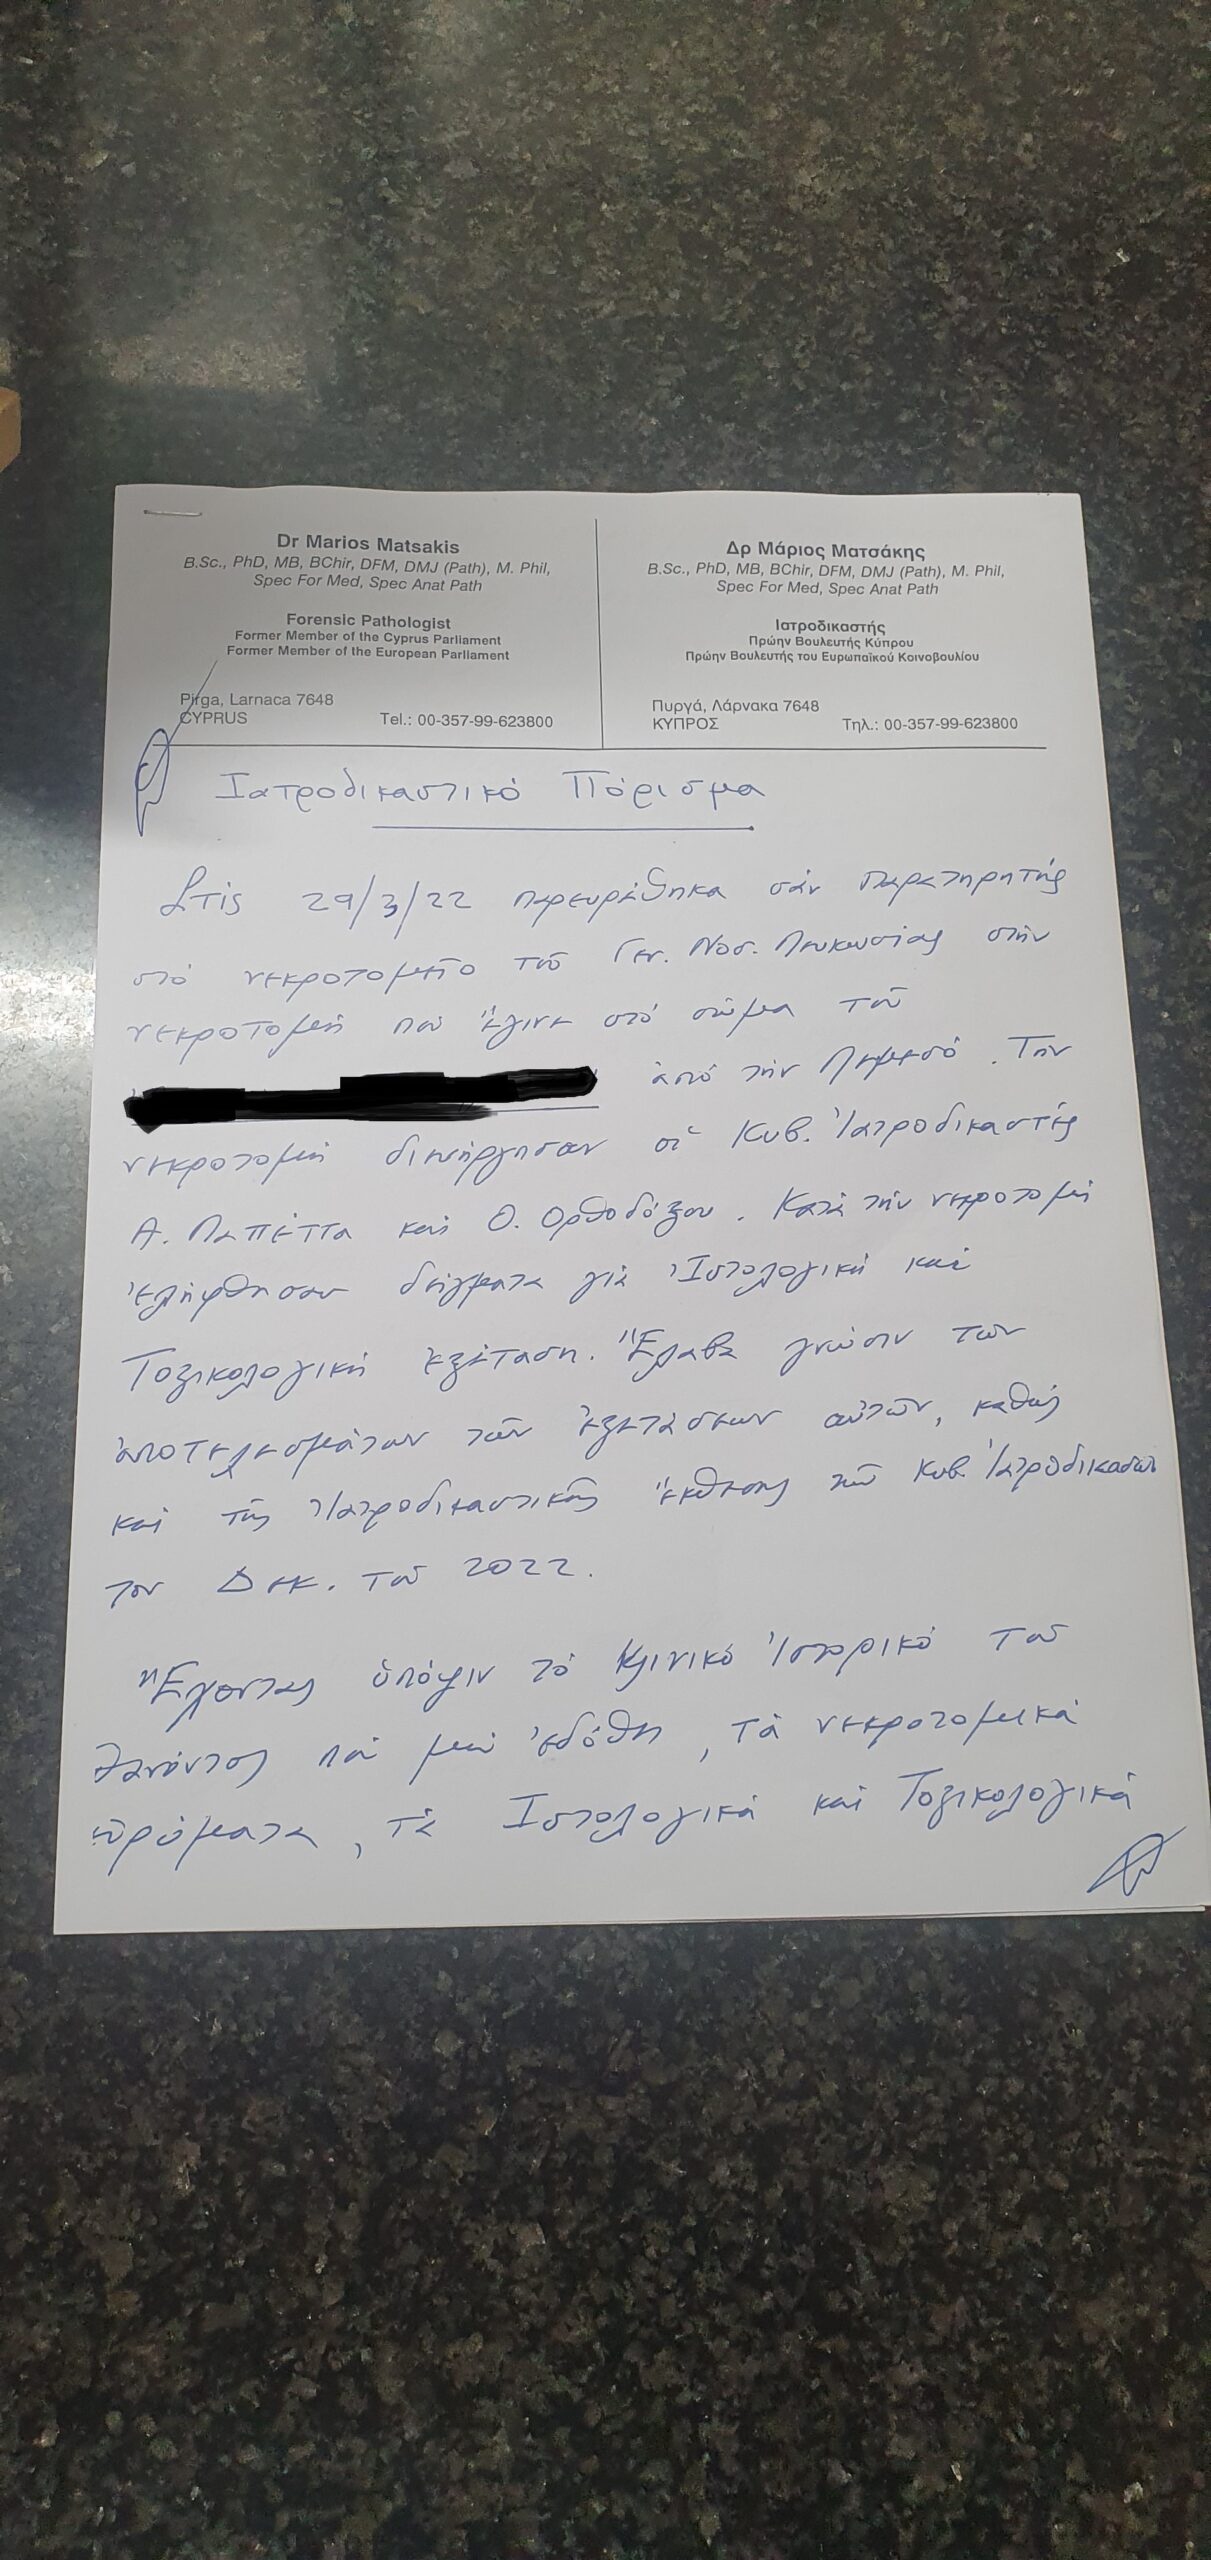 Dr Marios Matsakis
B.Sc., PhD, MB, BChir, DFM, DMJ (Path), M. Phil,
Spec For Med, Spec Anat Path
Forensic Pathologist
Former Member of the Cyprus Parliament
Former Member of the European Parliament
Pirga, Larnaca 7648
CYPRUS Tel.: 00-357-99-623800
Δρ Μάριος Ματσάκης
B.Sc., PhD, MB, BChir, DFM, DMJ (Path), M. Phil,
Spec For Med, Spec Anat Path
Ιατροδικαστής
Πρώην Βουλευτής Κύπρου
Πρώην Βουλευτής του Ευρωπαϊκού Κοινοβουλίου
Πυργά, Λάρνακα 7648
ΚΥΠΡΟΣ Τηλ.: 00-357-99-623800
Ἰατροδικαστικό Πόρισμα
Στίς 29/3/22 παρευρέθηκα σάν παρατηρητής
στό νεκροτομεῖο τοῦ Γεν. Νοσ. Λευκωσίας στήν
νεκροτομή πού ἔγινε στό σῶμα τοῦ
ἀπό τήν Λεμεσό. Τήν
νεκροτομή διενήργησαν οἱ Κυβ. Ἰατροδικαστές
Α. Παπέττα καί Ο. Ορθοδόξου. Κατά τήν νεκροτομή
ἐλήφθησαν δείγματα γιά Ἱστολογική καί
Τοξικολογική ἐξέταση. Ἔλαβα γνώσιν τῶν
ἀποτελεσμάτων τῶν ἐξετάσεων αὐτῶν, καθώς
καί τῆς Ἰατροδικαστικῆς ἔκθεσης τῶν Κυβ. Ἰατροδικαστῶν
τον Δεκ. τοῦ 2022.
Ἔχοντας ὑπόψιν τό Κλινικό Ἱστορικό τοῦ
θανόντος πού μοῦ ἐδόθη, τά νεκροτομικά
εὑρήματα, τά Ἱστολογικά καί Τοξικολογικά